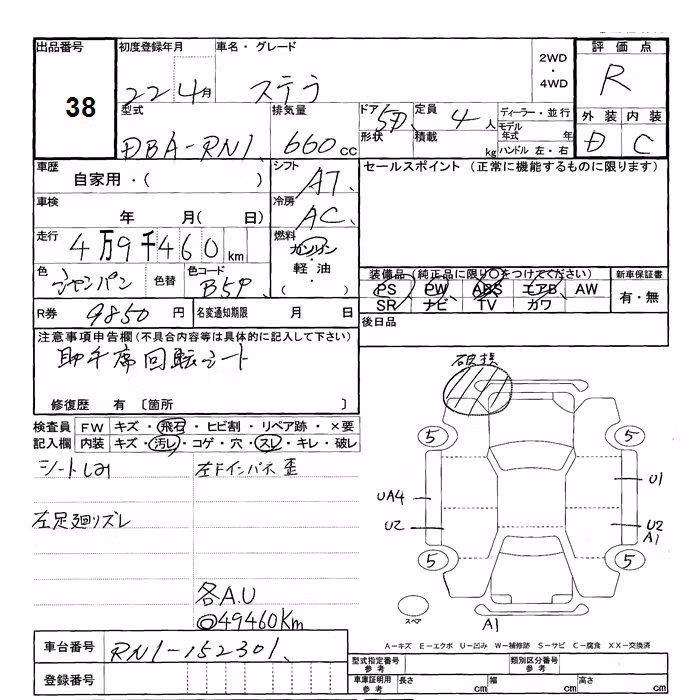 出品番号
38
初度登録年月
22 4月
車名・グレード
ステラ
2WD
・
4WD
評価点
R
型式
DBA-RN1
排気量
660 CC
ドア 5D
形状
定員 4 人
積載 kg
ディーラー・並行
モデル年式 年
ハンドル 左・右
外装 内装
D C
車歴
自家用・( )
シフト
AT
セールスポイント (正常に機能するものに限ります)
車検
年 月( 日)
冷房
AC
走行
4万9千460km
燃料
ガソリン
・
軽油
・
( )
色
シャンパン
色替
色コード
B5P
装備品 (純正品に限り○をつけてください)
PS PW ABS エアB AW
SR ナビ TV カワ
新車保証書
有・無
R券 9850 円
名変通知期限 月 日
後日品
注意事項申告欄(不具合内容等は具体的に記入して下さい)
助手席回転シート
修復歴 有 〔箇所 〕
検査員記入欄
FW キズ・飛石・ヒビ割・リペア跡・×要
内装 キズ・汚レ・コゲ・穴・スレ・キレ・破レ
シートしみ
左Fインパネ歪
左足廻りズレ
各A.U
◎49460Km
破損
5 5
UA4
U2
U1
U2
A1
5 5
スペア
A1
車台番号 RN1-152301
登録番号
A－キズ E－エクボ U－凹み W－補修跡 S－サビ C－腐食 XX－交換済
型式指定番号
参考
類別区分番号
参考
車庫証明用
参考
長さ cm 幅 cm 高さ cm